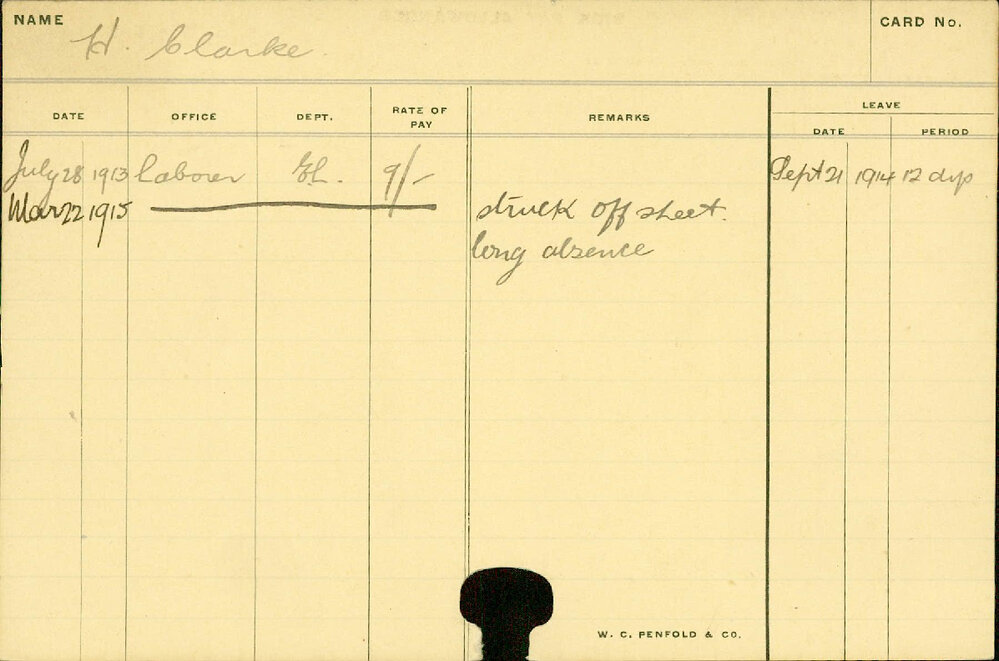 NAME H. Clarke CARD No.
DATE OFFICE DEPT. RATE OF PAY REMARKS LEAVE
DATE PERIOD
July 28 1913 laborer 9/- Sept 21 1914 12 dys
Mar 22 1915 struck off sheet.
long absence
W. C. PENFOLD & CO.